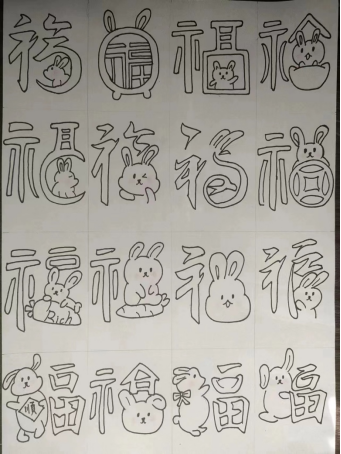 福 福 福 福
福 福 福 福
福 福 福 福
Rich
福 福 福 福
順